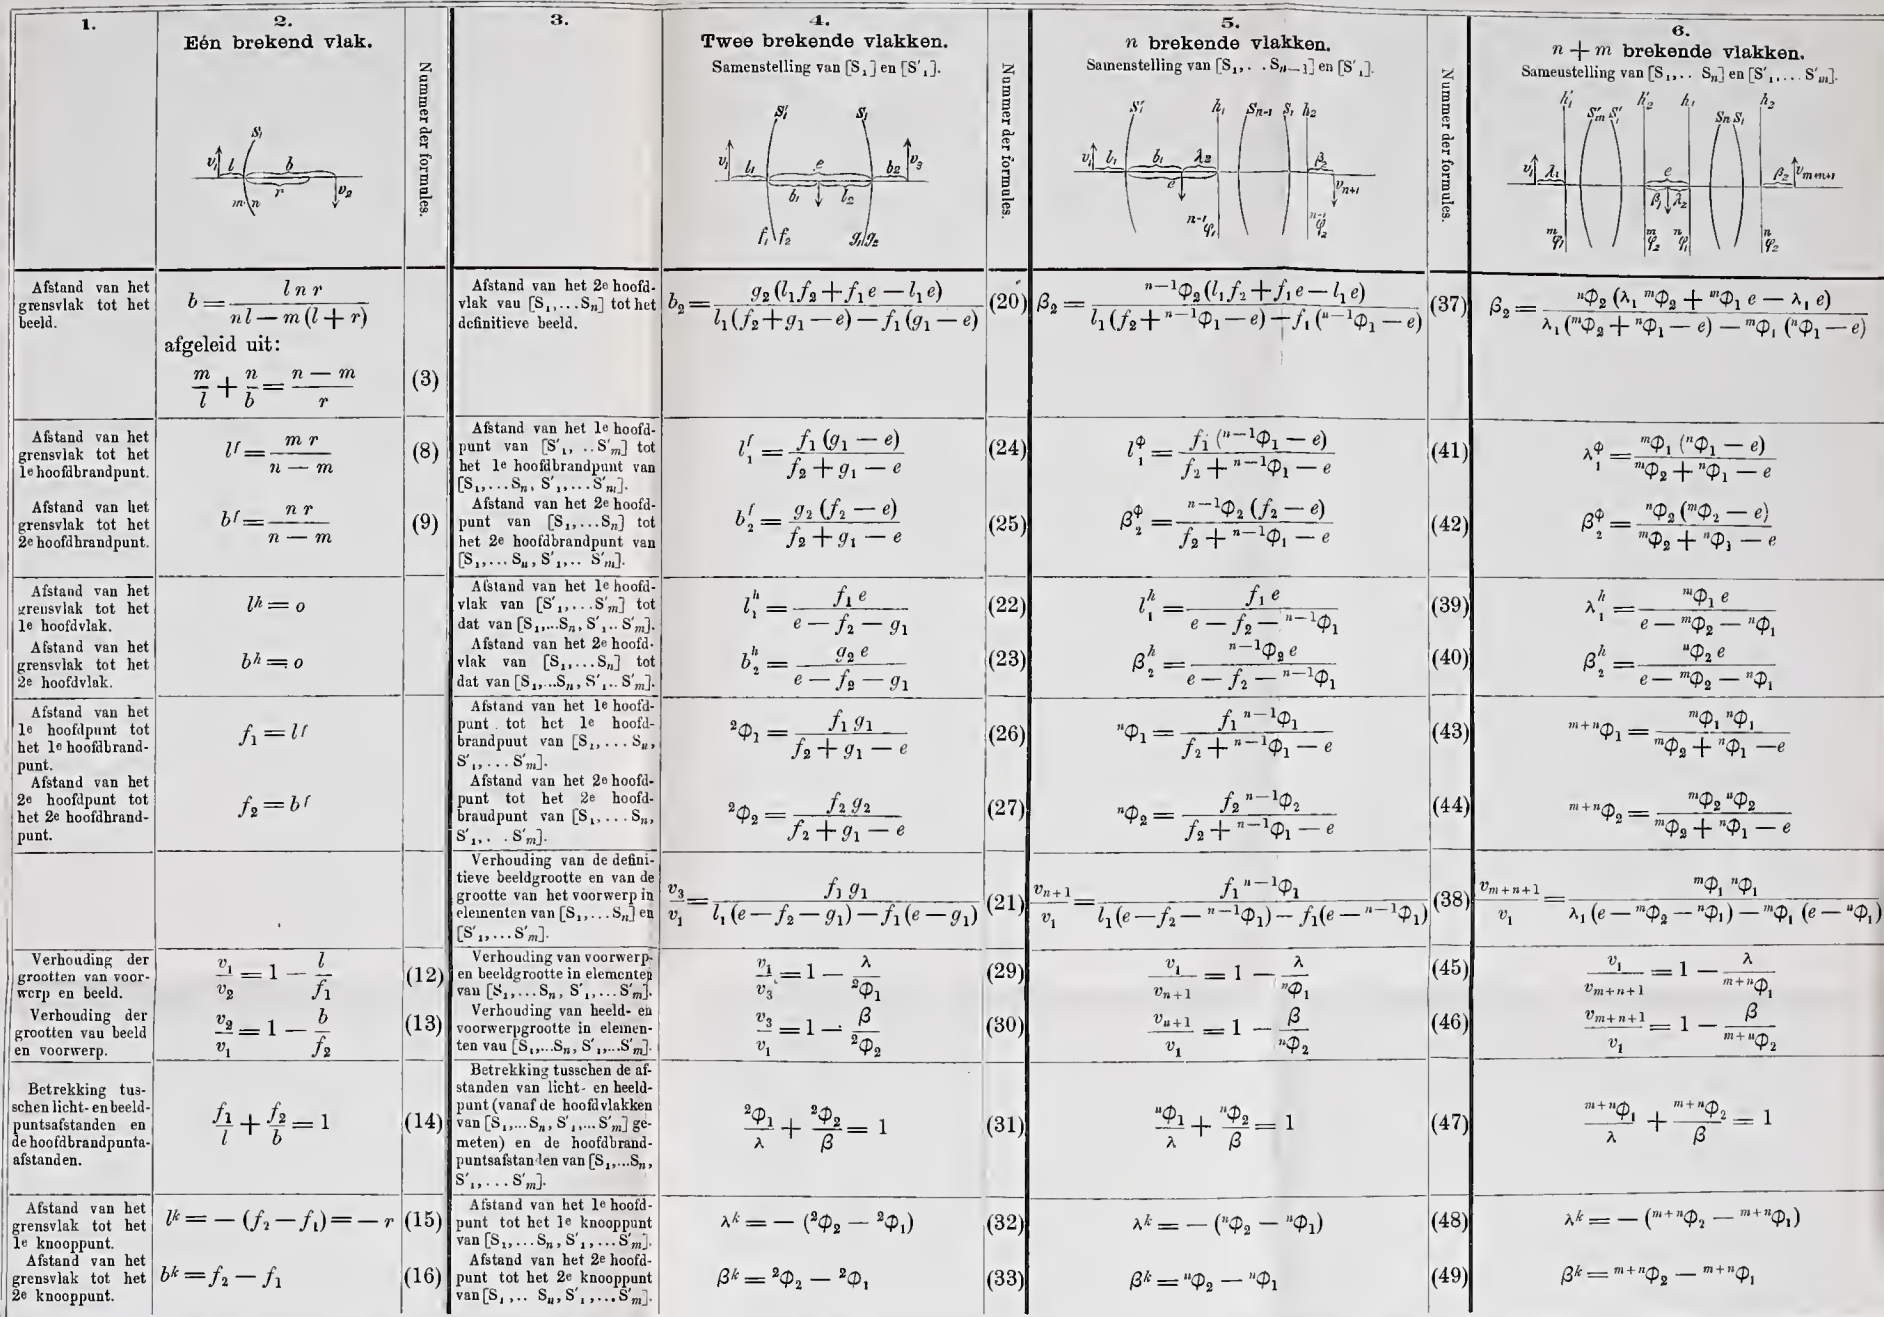 1.
2.
Eén brekend vlak.
Nummer der formules.
3.
4.
Twee brekende vlakken.
Samenstelling van [S₁] en [S'₁].
Nummer der formules.
5.
n brekende vlakken.
Samenstelling van [S₁, . . S_{n–1}] en [S'₁].
Nummer der formules.
6.
n + m brekende vlakken.
Sameustelling van [S₁, . . S_n] en [S'₁, . . . S'_m].
S₁
v₁ l b
r v₂
m n
S'₁ S₁
v₁ l₁ e b₂ v₃
b₁ l₂
f₁ f₂ g₁ g₂
S'₁ h₁ S_{n-1} S₁ h₂
v₁ l₁ b₁ λ₂ β₂
e v_{n+1}
ⁿ⁻¹φ₁ ⁿ⁻¹φ₂
h'₁ S'_m S'₁ h'₂ h₁ S_n S₁ h₂
v₁ λ₁ e β₂ v_{m+n+1}
β₁ λ₂
ᵐφ₁ ᵐφ₂ ⁿφ₁ ⁿφ₂
Afstand van het
grensvlak tot het
beeld.
b = l n r / (n l — m (l + r))
afgeleid uit:
m/l + n/b = (n — m)/r
(3)
Afstand van het 2e hoofd-
vlak vau [S₁, . . . S_n] tot het
definitieve beeld.
b₂ = g₂ (l₁ f₂ + f₁ e — l₁ e) / (l₁ (f₂ + g₁ — e) — f₁ (g₁ — e))
(20)
β₂ = ⁿ⁻¹Φ₂ (l₁ f₂ + f₁ e — l₁ e) / (l₁ (f₂ + ⁿ⁻¹Φ₁ — e) — f₁ (ⁿ⁻¹Φ₁ — e))
(37)
β₂ = ⁿΦ₂ (λ₁ ᵐΦ₂ + ᵐΦ₁ e — λ₁ e) / (λ₁ (ᵐΦ₂ + ⁿΦ₁ — e) — ᵐΦ₁ (ⁿΦ₁ — e))
Afstand van het
grensvlak tot het
1e hoofdbrandpunt.
l^f = m r / (n — m)
(8)
Afstand van het 1e hoofd-
punt van [S'₁, . . S'_m] tot
het 1e hoofdbrandpunt van
[S₁, . . . S_n, S'₁, . . . S'_m].
l₁^f = f₁ (g₁ — e) / (f₂ + g₁ — e)
(24)
l₁^Φ = f₁ (ⁿ⁻¹Φ₁ — e) / (f₂ + ⁿ⁻¹Φ₁ — e)
(41)
λ₁^Φ = ᵐΦ₁ (ⁿΦ₁ — e) / (ᵐΦ₂ + ⁿΦ₁ — e)
Afstand van het
grensvlak tot het
2e hoofdbrandpunt.
b^f = n r / (n — m)
(9)
Afstand van het 2e hoofd-
punt van [S₁, . . . S_n] tot
het 2e hoofdbrandpunt van
[S₁, . . . S_n, S'₁, . . S'_m].
b₂^f = g₂ (f₂ — e) / (f₂ + g₁ — e)
(25)
β₂^Φ = ⁿ⁻¹Φ₂ (f₂ — e) / (f₂ + ⁿ⁻¹Φ₁ — e)
(42)
β₂^Φ = ⁿΦ₂ (ᵐΦ₂ — e) / (ᵐΦ₂ + ⁿΦ₁ — e)
Afstand van het
grensvlak tot het
1e hoofdvlak.
l^h = o
Afstand van het 1e hoofd-
vlak van [S'₁, . . . S'_m] tot
dat van [S₁, . . . S_n, S'₁ . . S'_m].
l₁^h = f₁ e / (e — f₂ — g₁)
(22)
l₁^h = f₁ e / (e — f₂ — ⁿ⁻¹Φ₁)
(39)
λ₁^h = ᵐΦ₁ e / (e — ᵐΦ₂ — ⁿΦ₁)
Afstand van het
grensvlak tot het
2e hoofdvlak.
b^h = o
Afstand van het 2e hoofd-
vlak van [S₁, . . . S_n] tot
dat van [S₁, . . . S_n, S'₁ . . S'_m].
b₂^h = g₂ e / (e — f₂ — g₁)
(23)
β₂^h = ⁿ⁻¹Φ₂ e / (e — f₂ — ⁿ⁻¹Φ₁)
(40)
β₂^h = ⁿΦ₂ e / (e — ᵐΦ₂ — ⁿΦ₁)
Afstand van het
1e hoofdpunt tot
het 1e hoofdbrand-
punt.
f₁ = l^f
Afstand van het 1e hoofd-
punt tot het 1e hoofd-
brandpuut van [S₁, . . . S_n,
S'₁, . . . S'_m].
²Φ₁ = f₁ g₁ / (f₂ + g₁ — e)
(26)
ⁿΦ₁ = f₁ ⁿ⁻¹Φ₁ / (f₂ + ⁿ⁻¹Φ₁ — e)
(43)
ᵐ⁺ⁿΦ₁ = ᵐΦ₁ ⁿΦ₁ / (ᵐΦ₂ + ⁿΦ₁ — e)
Afstand van het
2e hoofdpunt tot
het 2e hoofdbrand-
punt.
f₂ = b^f
Afstand van het 2e hoofd-
punt tot het 2e hoofd-
braudpunt van [S₁, . . . S_n,
S'₁, . . S'_m].
²Φ₂ = f₂ g₂ / (f₂ + g₁ — e)
(27)
ⁿΦ₂ = f₂ ⁿ⁻¹Φ₂ / (f₂ + ⁿ⁻¹Φ₁ — e)
(44)
ᵐ⁺ⁿΦ₂ = ᵐΦ₂ ⁿΦ₂ / (ᵐΦ₂ + ⁿΦ₁ — e)
Verhouding van de defini-
tieve beeldgrootte en van de
grootte van het voorwerp in
elementen van [S₁, . . . S_n] en
[S'₁, . . . S'_m].
v₃/v₁ = f₁ g₁ / (l₁ (e — f₂ — g₁) — f₁ (e — g₁))
(21)
v_{n+1}/v₁ = f₁ ⁿ⁻¹Φ₁ / (l₁ (e — f₂ — ⁿ⁻¹Φ₁) — f₁ (e — ⁿ⁻¹Φ₁))
(38)
v_{m+n+1}/v₁ = ᵐΦ₁ ⁿΦ₁ / (λ₁ (e — ᵐΦ₂ — ⁿΦ₁) — ᵐΦ₁ (e — ⁿΦ₁))
Verhouding der
grootten van voor-
werp en beeld.
v₁/v₂ = 1 — l/f₁
(12)
Verhouding van voorwerp-
en beeldgrootte in elementen
van [S₁, . . . S_n, S'₁, . . . S'_m].
v₁/v₃ = 1 — λ/²Φ₁
(29)
v₁/v_{n+1} = 1 — λ/ⁿΦ₁
(45)
v₁/v_{m+n+1} = 1 — λ/ᵐ⁺ⁿΦ₁
Verhouding der
grootten vau beeld
en voorwerp.
v₂/v₁ = 1 — b/f₂
(13)
Verhouding van beeld- en
voorwerpgrootte in elemen-
ten vau [S₁, . . . S_n, S'₁, . . . S'_m].
v₃/v₁ = 1 — β/²Φ₂
(30)
v_{n+1}/v₁ = 1 — β/ⁿΦ₂
(46)
v_{m+n+1}/v₁ = 1 — β/ᵐ⁺ⁿΦ₂
Betrekking tus-
schen licht- en beeld-
puntsafstanden en
de hoofdbrandpunta-
afstanden.
f₁/l + f₂/b = 1
(14)
Betrekking tusschen de af-
standen van licht- en beeld-
punt (vanaf de hoofdvlakken
van [S₁, . . . S_n, S'₁, . . . S'_m] ge-
meten) en de hoofdbrand-
puntsafstanden van [S₁, . . . S_n,
S'₁, . . . S'_m].
²Φ₁/λ + ²Φ₂/β = 1
(31)
ⁿΦ₁/λ + ⁿΦ₂/β = 1
(47)
ᵐ⁺ⁿΦ₁/λ + ᵐ⁺ⁿΦ₂/β = 1
Afstand van het
grensvlak tot het
1e knooppunt.
l^k = — (f₂ — f₁) = — r
(15)
Afstand van het 1e hoofd-
punt tot het 1e knooppunt
van [S₁, . . . S_n, S'₁, . . . S'_m].
λ^k = — (²Φ₂ — ²Φ₁)
(32)
λ^k = — (ⁿΦ₂ — ⁿΦ₁)
(48)
λ^k = — (ᵐ⁺ⁿΦ₂ — ᵐ⁺ⁿΦ₁)
Afstand van het
grensvlak tot het
2e knooppunt.
b^k = f₂ — f₁
(16)
Afstand van het 2e hoofd-
punt tot het 2e knooppunt
van [S₁, . . S_n, S'₁, . . . S'_m].
β^k = ²Φ₂ — ²Φ₁
(33)
β^k = ⁿΦ₂ — ⁿΦ₁
(49)
β^k = ᵐ⁺ⁿΦ₂ — ᵐ⁺ⁿΦ₁